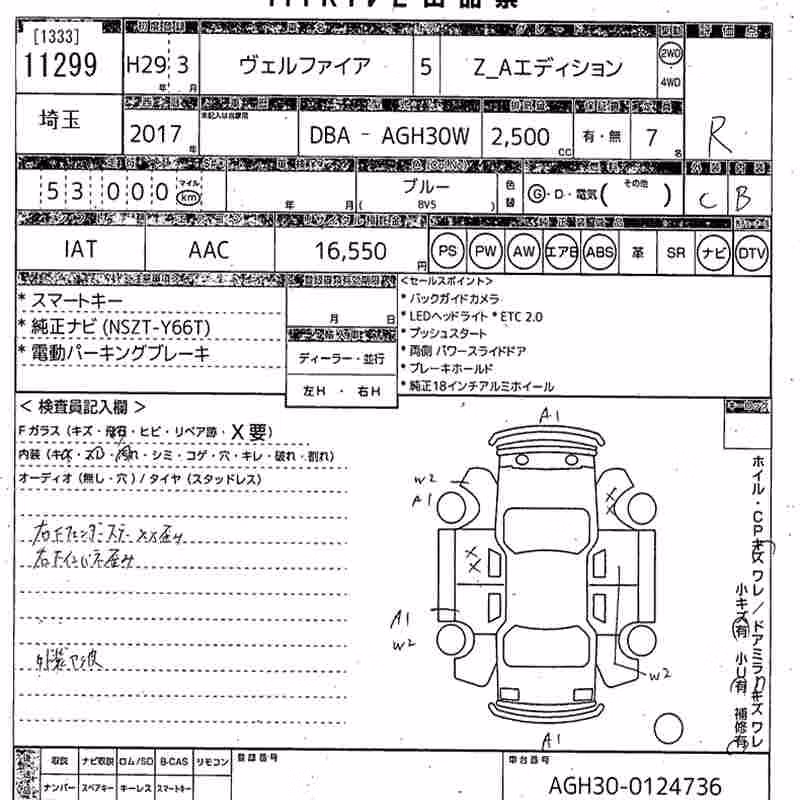 [1333]
11299
H29 3 ヴェルファイア 5 Z_Aエディション 2WD
年 月 4WD
埼玉
2017 DBA - AGH30W 2,500 有・無 7 R
年 CC 名
53000 マイル km
年 月 ( ブルー 8V5 ) 色替 G・D・電気( その他 ) C B
IAT AAC 16,550円 PS PW AW エアB ABS 革 SR ナビ DTV
* スマートキー
* 純正ナビ (NSZT-Y66T)
* 電動パーキングブレーキ
月 日
ディーラー・並行
左H ・ 右H
<セールスポイント>
* バックガイドカメラ
* LEDヘッドライト * ETC 2.0
* プッシュスタート
* 両側 パワースライドドア
* ブレーキホールド
* 純正18インチアルミホイール
< 検査員記入欄 >
Fガラス (キズ・飛石・ヒビ・リペア跡・X要)
・シミ・コゲ・穴・キレ・破れ・割れ)
オーディオ (無し・穴) / タイヤ (スタッドレス)
A1
W2
A1
X
X
X
X
A1
W2
W2
A1
ホイル・CPキズ ワレ / ドアミラーキズ ワレ
小キズ 有 小U 有 補修 有
取説 ナビ取説 ロム/SD B-CAS リモコン 登録番号 車台番号
ナンバー スペアキー キーレス スマートキー AGH30-0124736